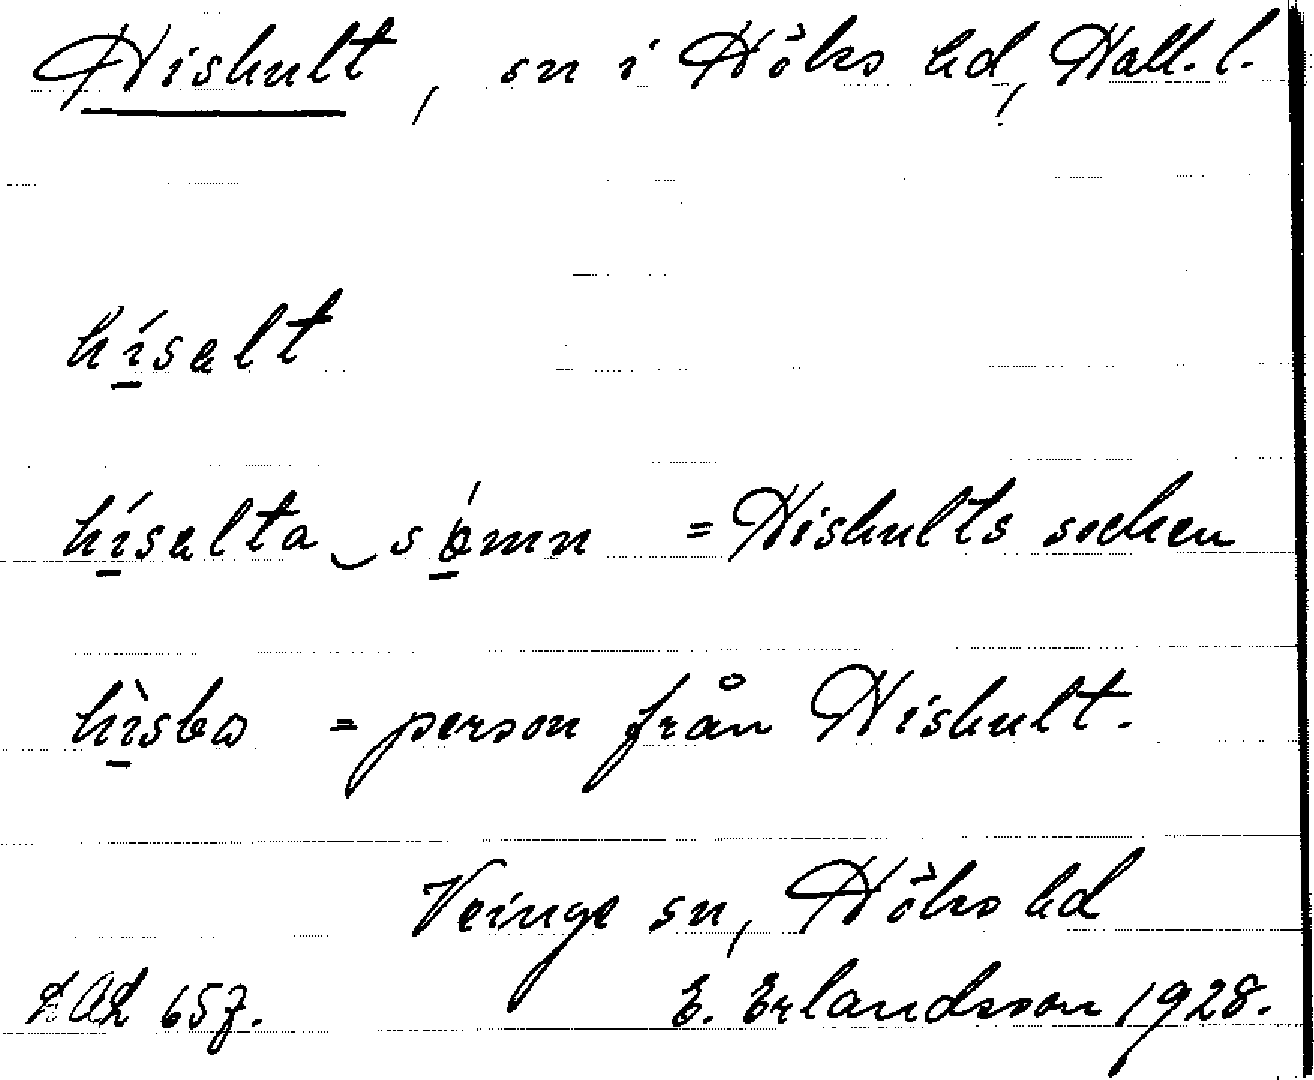 Hishult, sn i Höks hd, Hall. l.
hísalt
hísalta sǿmn = Hishults socken
hìsbo = person från Hishult.
Veinge sn, Höks hd
LAL 657. E. Erlandsson 1928.